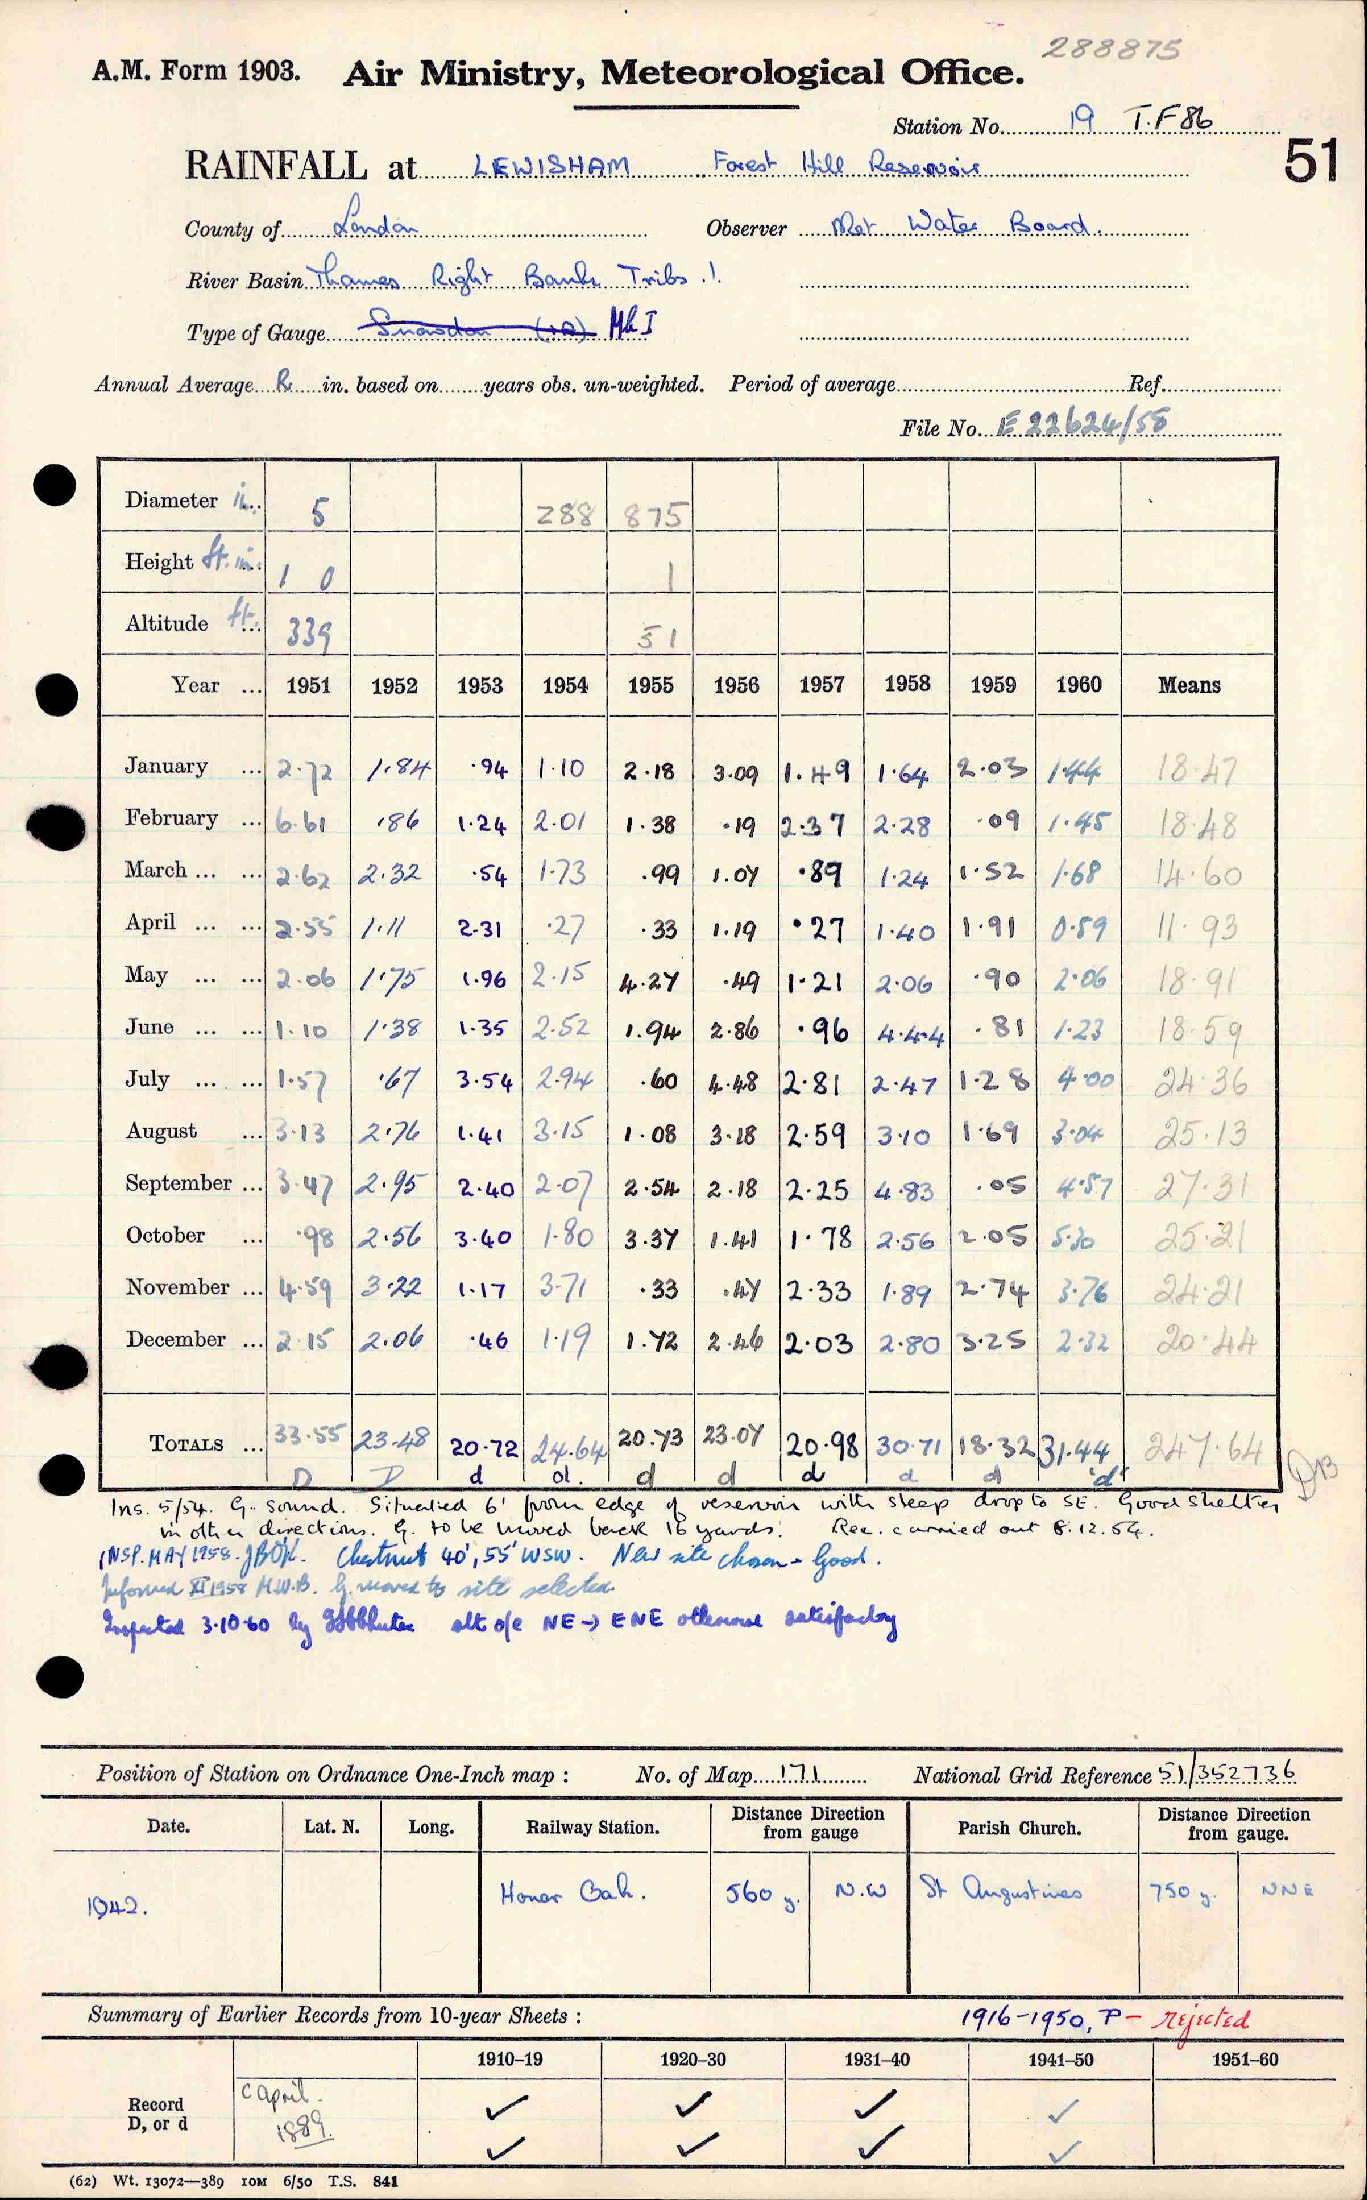 288875
A.M. Form 1903. Air Ministry, Meteorological Office.
Station No. 19 T.F86
51
RAINFALL at LEWISHAM Forest Hill Reservoir
County of London Observer Met Water Board.
River Basin Thames Right Bank Tribs 1
Type of Gauge Snowdon (1A) Mk I
Annual Average R in. based on years obs. un-weighted. Period of average Ref.
File No. E 22624/58
Diameter in. 5 288 875
Height ft. in. 1 0 1
Altitude ft. 339 51
Year ... 1951 1952 1953 1954 1955 1956 1957 1958 1959 1960 Means
January ... 2.72 1.84 .94 1.10 2.18 3.09 1.49 1.64 2.03 1.44 18.47
February ... 6.61 .86 1.24 2.01 1.38 .19 2.37 2.28 .09 1.45 18.48
March ... ... 2.62 2.32 .54 1.73 .99 1.07 .89 1.24 1.52 1.68 14.60
April ... ... 2.55 1.11 2.31 .27 .33 1.19 .27 1.40 1.91 0.59 11.93
May ... ... 2.06 1.75 1.96 2.15 4.27 .49 1.21 2.06 .90 2.06 18.91
June ... ... 1.10 1.38 1.35 2.52 1.94 2.86 .96 4.44 .81 1.23 18.59
July ... ... 1.57 .67 3.54 2.94 .60 4.48 2.81 2.47 1.28 4.00 24.36
August ... 3.13 2.76 1.41 3.15 1.08 3.18 2.59 3.10 1.69 3.04 25.13
September ... 3.47 2.95 2.40 2.07 2.54 2.18 2.25 4.83 .05 4.57 27.31
October ... .98 2.56 3.40 1.80 3.37 1.41 1.78 2.56 2.05 5.30 25.21
November ... 4.59 3.22 1.17 3.71 .33 .47 2.33 1.89 2.74 3.76 24.21
December ... 2.15 2.06 .46 1.19 1.72 2.46 2.03 2.80 3.25 2.32 20.44
TOTALS ... 33.55 23.48 20.72 24.64 20.73 23.07 20.98 30.71 18.32 31.44 247.64
D D d d. d d d d d 'd'
Ins. 5/54. G. sound. Situated 6' from edge of reservoir with steep drop to SE. Good shelter
in other directions. G. to be moved back 16 yards. Rec. carried out 8.12.54.
INSP. MAY 1958. Chestnut 40', 55' WSW. New site chosen - Good.
Informed XI 1958 M.W.B. G. moved to site selected
Inspected 3.10.60 by alt o/e NE → ENE otherwise satisfactory
Position of Station on Ordnance One-Inch map : No. of Map 171 National Grid Reference 51/352736
Date. Lat. N. Long. Railway Station. Distance Direction from gauge Parish Church. Distance Direction from gauge.
1942. Honor Oak. 560 y. N.W St Augustines 750 y. NNE
Summary of Earlier Records from 10-year Sheets : 1916-1950, P - rejected
1910–19 1920–30 1931–40 1941–50 1951–60
Record D, or d
c April.
1889
(62) Wt. 13072—389 10M 6/50 T.S. 841